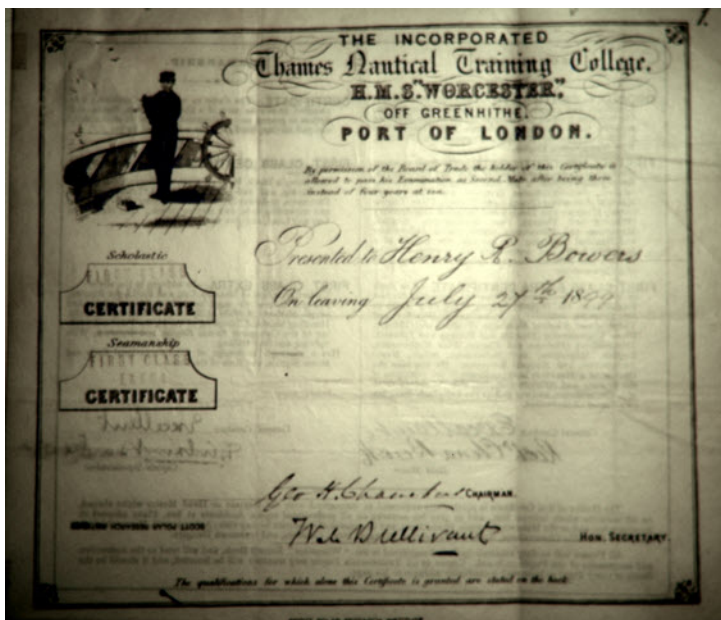 THE INCORPORATED
Thames Nautical Training College.
H.M.S. "WORCESTER".
OFF GREENHITHE.
PORT OF LONDON.
By permission of the Board of Trade the holder of this Certificate is
allowed to pass his Examination as Second Mate after being three
instead of four years at sea.
Presented to Henry R. Bowers
On leaving July 27th 1899
Scholastic
FIRST CLASS
EXTRA
CERTIFICATE
Seamanship
FIRST CLASS
EXTRA
CERTIFICATE
Geo H. Chambers CHAIRMAN.
HON. SECRETARY.
SCOTT POLAR RESEARCH INSTITUTE
The qualifications for which alone this Certificate is granted are stated on the back